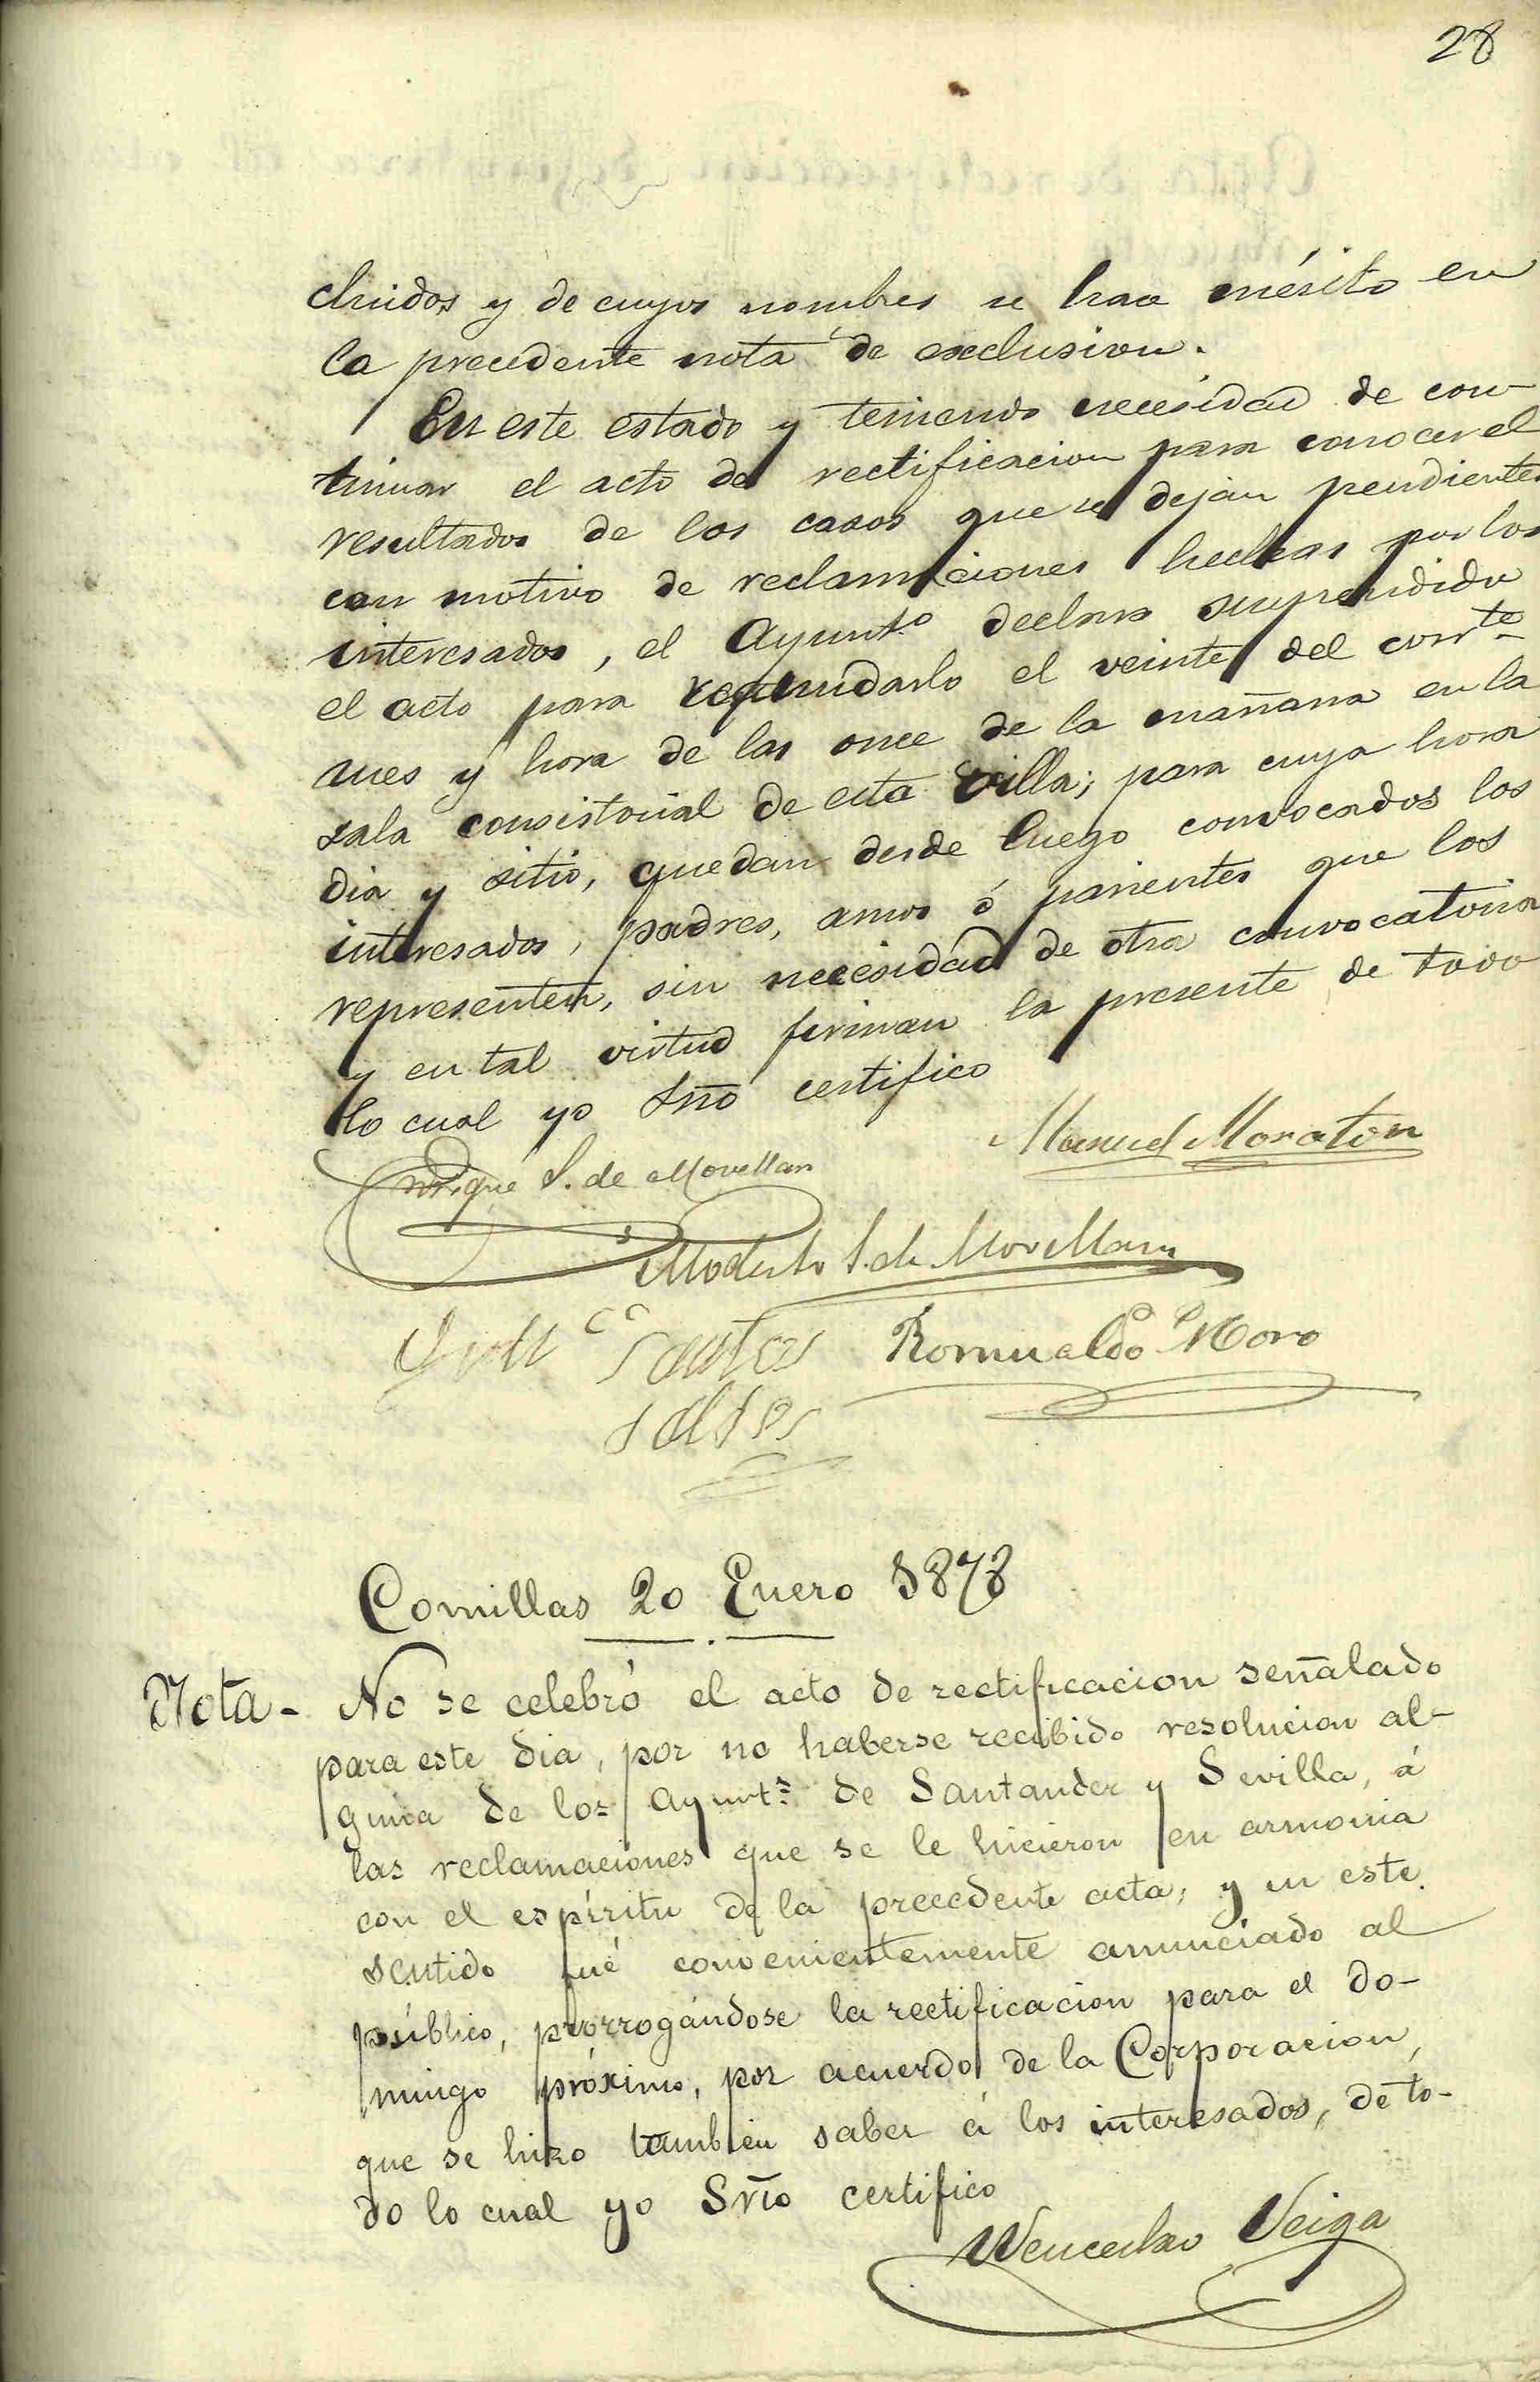 28
cluidos y de cuyos nombres se hace mérito en
la precedente nota de exclusion.
En este estado y teniendo necesidad de con-
tinuar el acto de rectificacion para conocer el
resultado de los casos que se dejan pendientes
con motivo de reclamaciones hechas por los
interesados, el Ayunt.º declara suspendido
el acto para reanudarlo el veinte del corrte
mes y hora de las once de la mañana en la
sala consistorial de esta villa; para cuya hora
dia y sitio, quedan desde luego convocados los
interesados, padres, amos ó parientes que los
representen, sin necesidad de otra convocatoria
y en tal virtud firman la presente de todo
lo cual yo Srio certifico
Manuel Moraton
Enrique S. de Movellan
Modesto S. de Movellan
Santos Romualdo Moro
Comillas 20 Enero 1878
Nota - No se celebró el acto de rectificacion señalado
para este dia, por no haberse recibido resolucion al-
guna de los Ayunts de Santander y Sevilla, á
las reclamaciones que se le hicieron en armonia
con el espíritu de la precedente acta; y en este
sentido fué convenientemente anunciado al
público, prorrogándose la rectificacion para el do-
mingo próximo, por acuerdo de la Corporacion,
que se hizo tambien saber á los interesados, de to-
do lo cual yo Srio certifico
Wenceslao Veiga